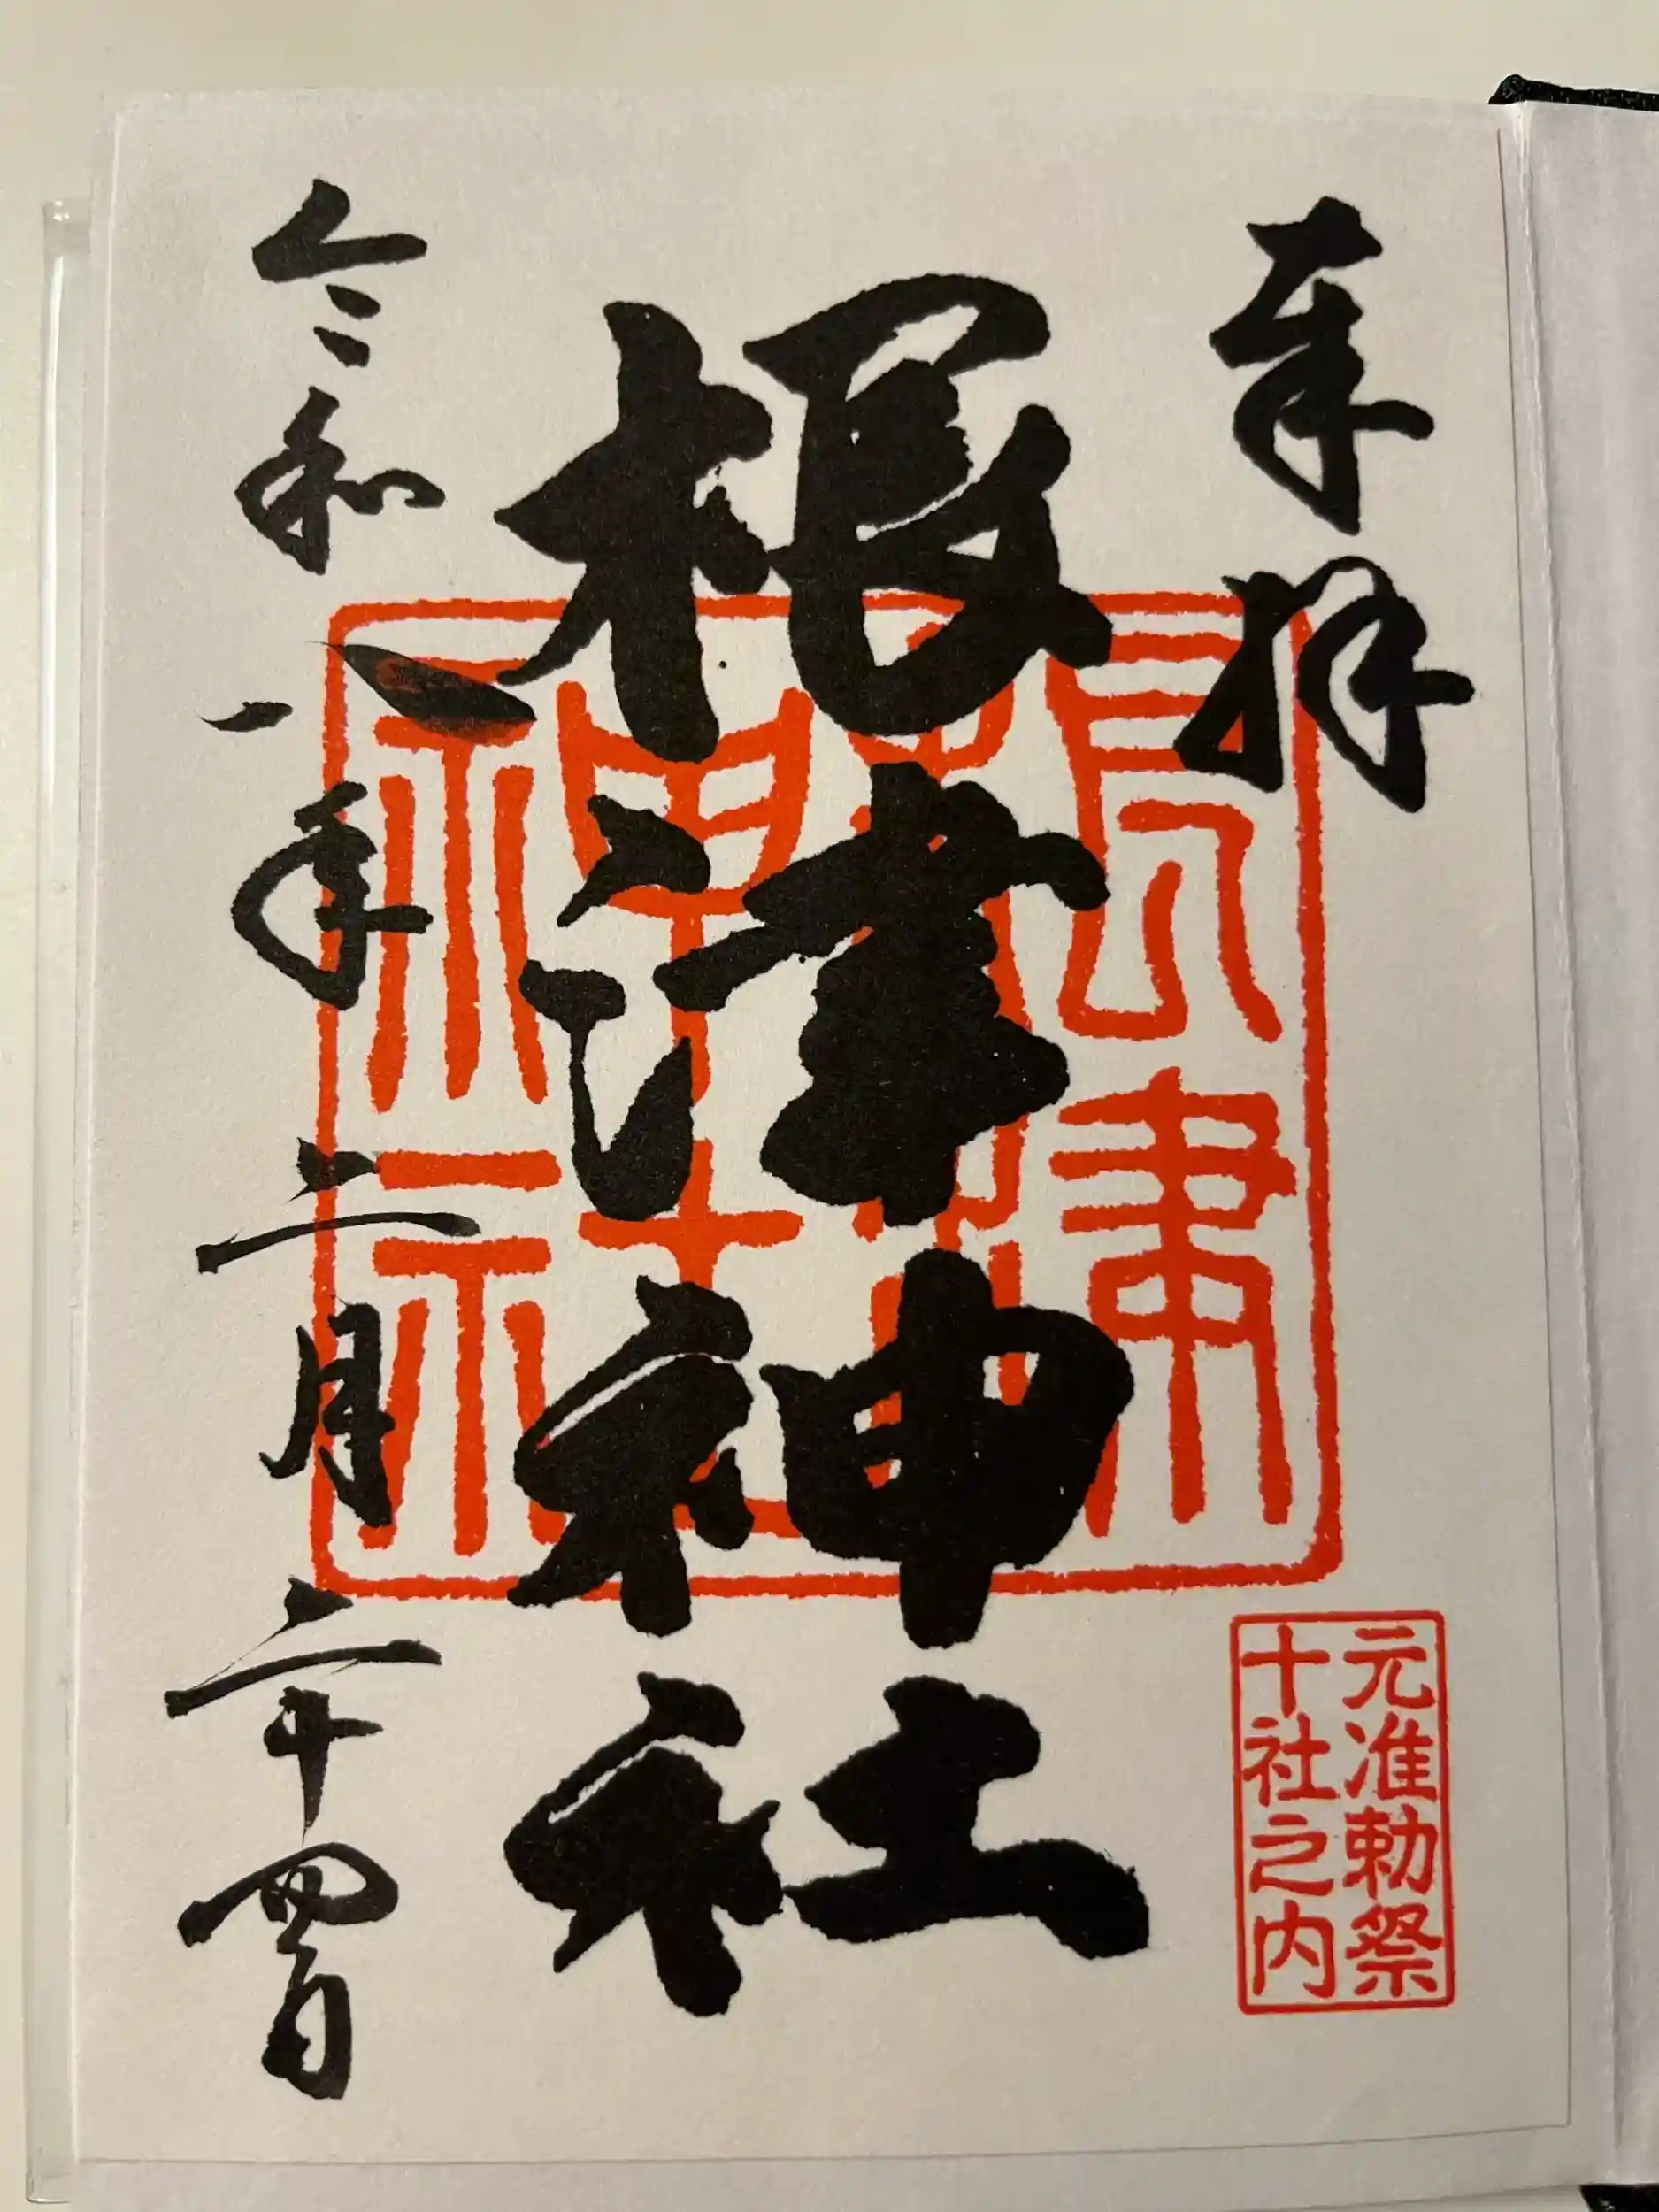 奉拝
元准勅祭
十社之内
根津神社
根津
神社
令和八年二月二十四日